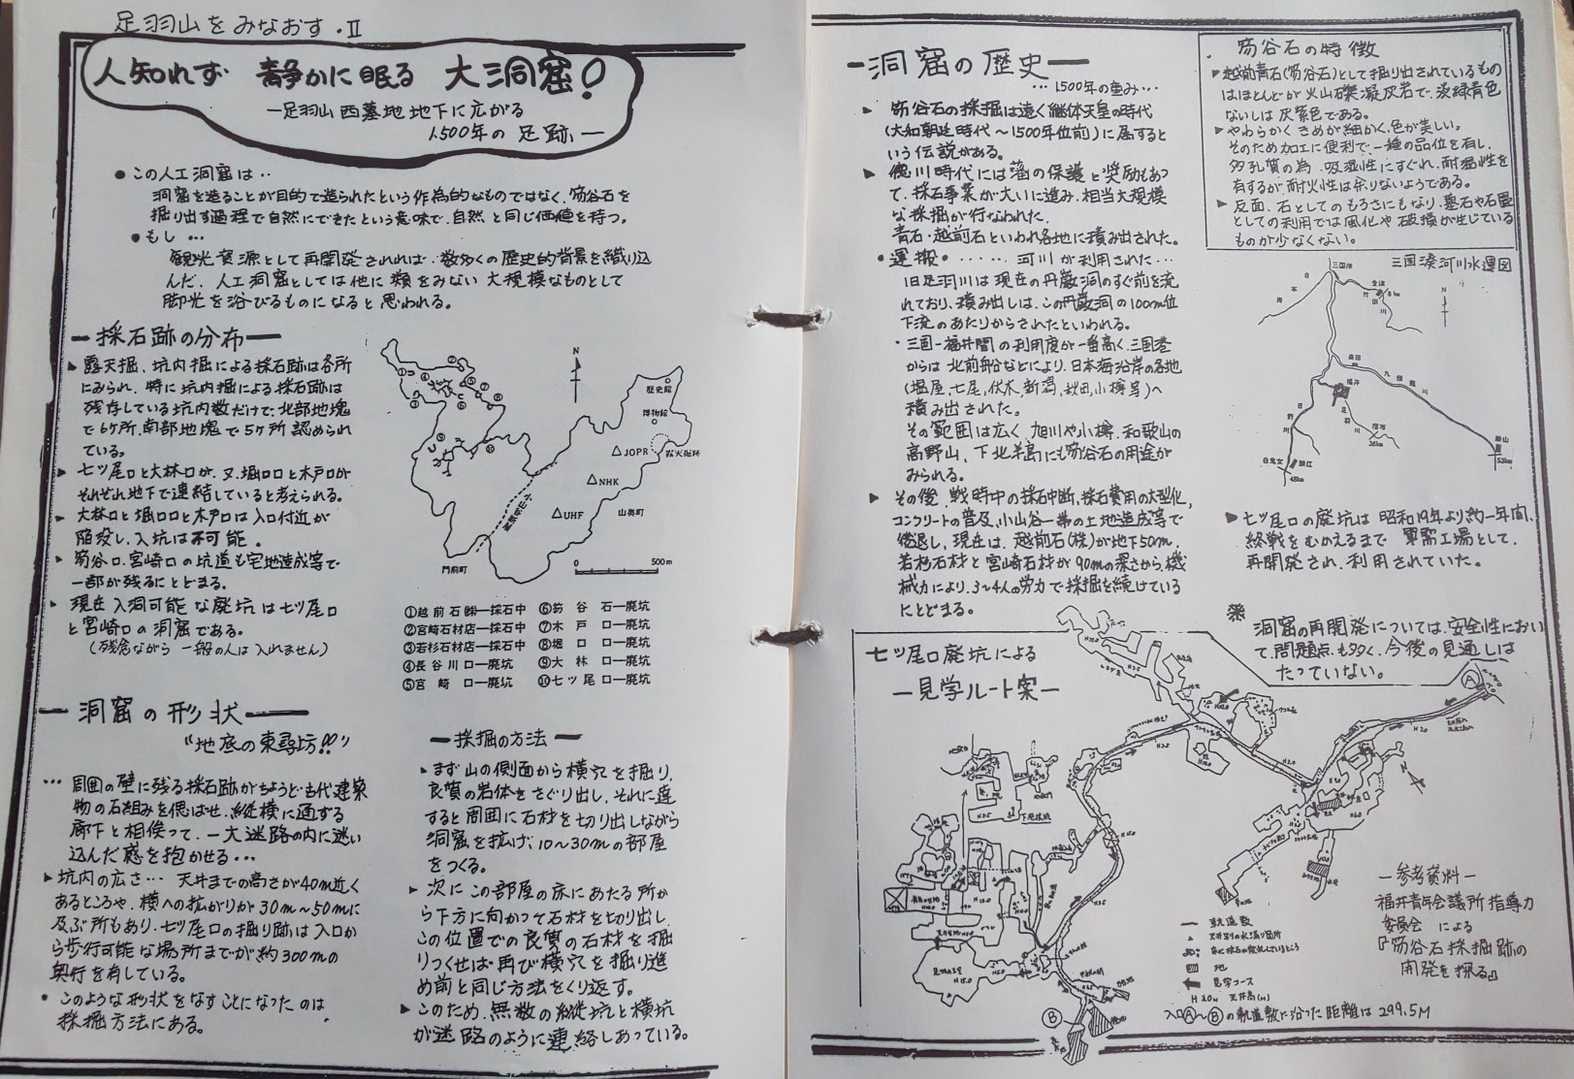 足羽山をみなおす・Ⅱ
人知れず 静かに眠る 大洞窟!
―足羽山西墓地地下に広がる
1.500年の足跡―
●この人工洞窟は‥
洞窟を造ることが目的で造られたという作為的なものではなく、笏谷石を
掘り出す過程で自然にできたという意味で、自然と同じ価値を持つ。
●もし…
観光資源として再開発されれば、数多くの歴史的背景を織り込
んだ、人工洞窟としては他に類をみない大規模なものとして
脚光を浴びるものになると思われる。
―採石跡の分布―
▶露天掘、坑内掘による採石跡は各所
にみられ、特に坑内掘による採石跡は
残存している坑内数だけで、北部地塊
で6ヶ所、南部地塊で5ヶ所認められ
ている。
▶七ツ尾口と大林口が、又、堀口口と木戸口が
それぞれ地下で連結していると考えられる。
▶大林口と堀口口と木戸口は入口付近が
陥没し、入坑は不可能。
▶笏谷口、宮崎口の坑道も宅地造成等で
一部が残るにとどまる。
▶現在入洞可能な廃坑は七ツ尾口
と宮崎口の洞窟である。
(残念ながら一般の人は入れません)
N
歴史館
博物館
△JOPR
△NHK
△UHF
山奥町
門前町
0 500m
①越前石㈱―採石中
②宮崎石材店―採石中
③若杉石材店―採石中
④長谷川口―廃坑
⑤宮崎口―廃坑
⑥笏谷石―廃坑
⑦木戸口―廃坑
⑧堀口―廃坑
⑨大林口―廃坑
⑩七ツ尾口―廃坑
―洞窟の形状―
"地底の東尋坊!!"
…周囲の壁に残る採石跡がちょうど古代建築
物の石組みを偲ばせ、縦横に通ずる
廊下と相俟って、一大迷路の内に迷い
込んだ感を抱かせる…
▶坑内の広さ…天井までの高さが40m近く
あるところや、横への拡がりが30m~50mに
及ぶ所もあり、七ツ尾口の掘り跡は入口か
ら歩行可能な場所までが約300mの
奥行を有している。
●このような形状をなすことになったのは
採掘方法にある。
―採掘の方法―
▶まず山の側面から横穴を掘り、
良質の岩体をさぐり出し、それに達
すると周囲に石材を切り出しながら
洞窟を拡げ、10~30mの部屋
をつくる。
▶次にこの部屋の床にあたる所か
ら下方に向かって石材を切り出し、
この位置での良質の石材を掘
りつくせば再び横穴を掘り進
め前と同じ方法をくり返す。
▶このため、無数の縦坑と横坑
が迷路のように連絡しあっている。
―洞窟の歴史―
…1500年の重み…
▶笏谷石の採掘は遠く継体天皇の時代
(大和朝廷時代~1500年位前)に属すると
いう伝説がある。
▶徳川時代には藩の保護と奨励もあっ
て、採石事業が大いに進み、相当大規模
な採掘が行なわれた。
青石・越前石といわれ各地に積み出された。
●運搬‥‥‥河川が利用された…
旧足羽川は現在の丹巌洞のすぐ前を流
れており、積み出しは、この丹巌洞の100m位
下流のあたりからされたといわれる。
・三国-福井間の利用度が一番高く、三国港
からは北前船などにより、日本海沿岸の各地
(堀屋、七尾、伏木、新潟、秋田、小樽等)へ
積み出された。
その範囲は広く、旭川や小樽、和歌山の
高野山、下北半島にも笏谷石の用途が
みられる。
▶その後、戦時中の採石中断、採石費用の大型化、
コンクリートの普及、小山谷一帯の土地造成等で
後退し、現在は、越前石(株)が地下50m、
若杉石材と宮崎石材が90mの深さから機
械力により、3~4人の労力で採掘を続けている
にとどまる。
笏谷石の特徴
▶越前青石(笏谷石)として掘り出されているもの
はほとんどが火山礫凝灰岩で、淡緑青色
ないしは灰紫色である。
▶やわらかくきめが細かく、色が美しい。
そのため加工に便利で、一種の品位を有し、
多孔質の為、吸湿性にすぐれ、耐湿性を
有するが、耐火性は余りないようである。
▶反面、石としてのもろさにもなり、墓石や石畳
としての利用では風化や破損が生じている
ものが少なくない。
三国湊河川水運図
三国港
日本海
竹田川
N
森田
九頭龍川
福井
足羽川
日野川
白鬼女
鯖江
勝山
▶七ツ尾口の廃坑は昭和19年より約一年間、
終戦をむかえるまで軍需工場として、
再開発され、利用されていた。
※洞窟の再開発については、安全性におい
て、問題点も多く、今後の見通しは
たっていない。
七ツ尾口廃坑による
―見学ルート案―
Ⓐ
Ⓑ
軌道敷
池
見学コース
H 20m 天井高(m)
入口Ⓐ~Ⓑの軌道敷に沿った距離は299.5M
―参考資料―
福井青年会議所指導力
委員会による
『笏谷石採掘跡の
開発を探る』